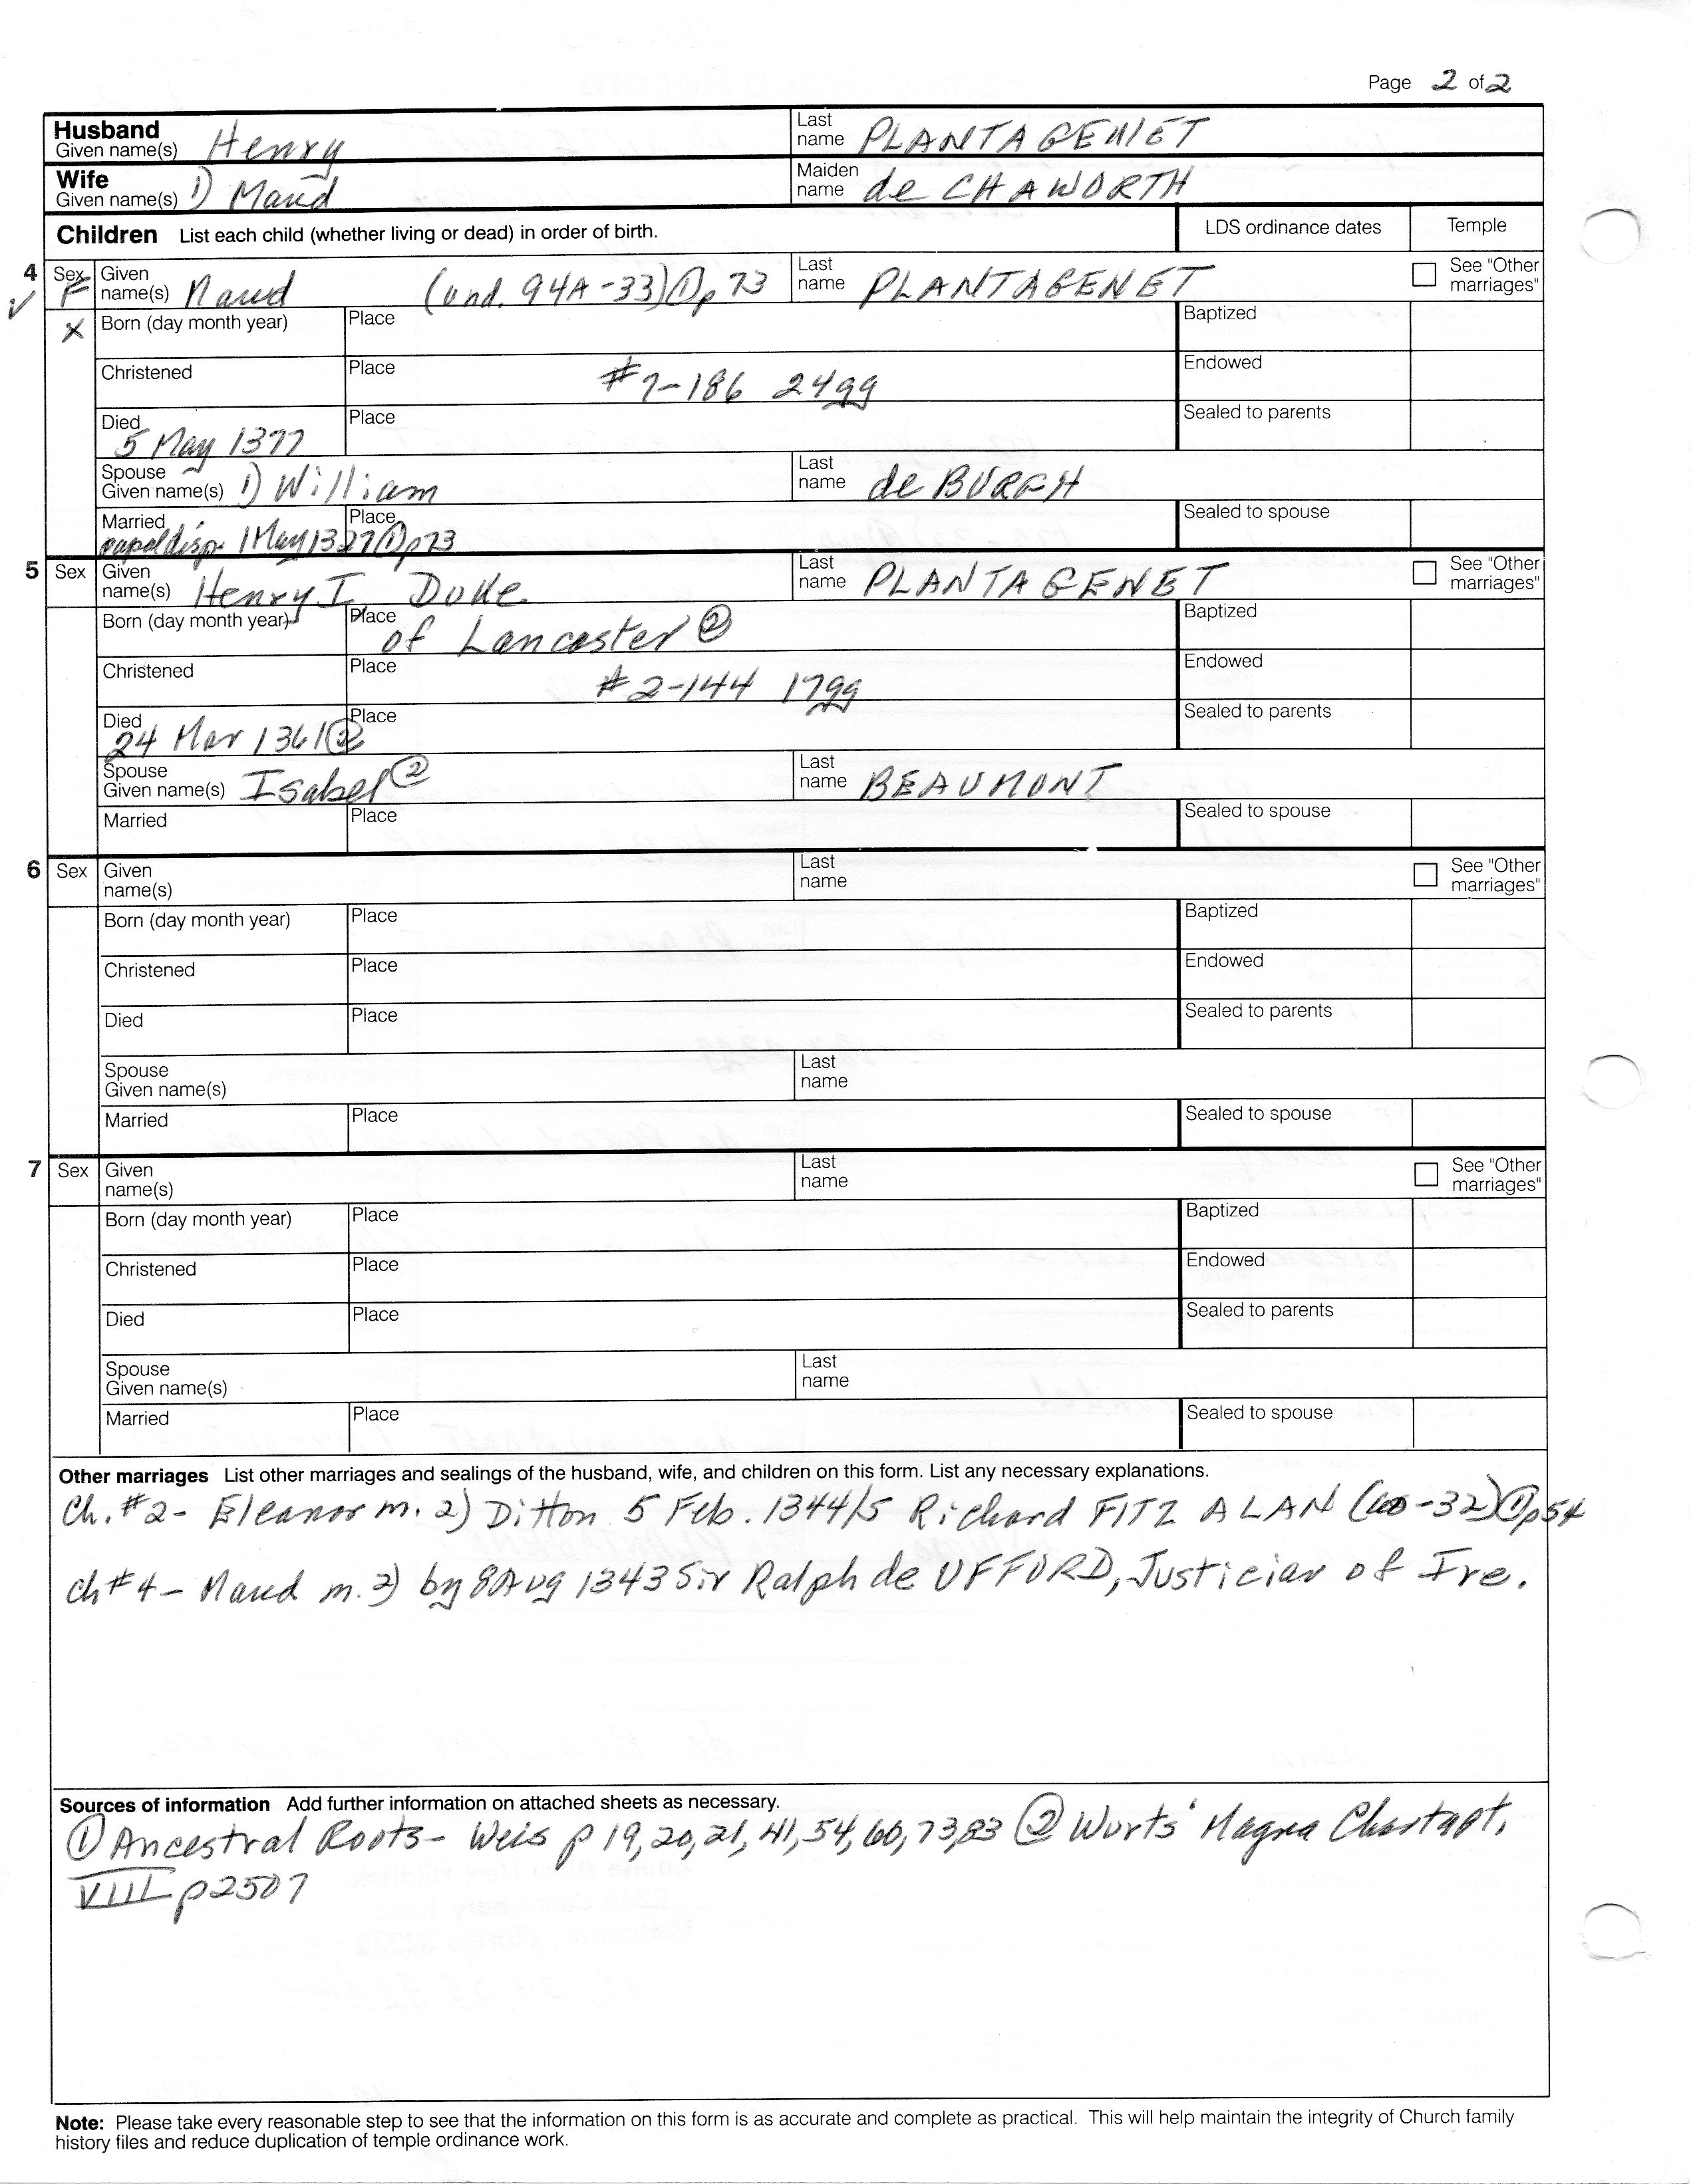 Page 2 of 2
Husband Given name(s) Henry Last name PLANTAGENET
Wife Given name(s) 1) Maud Maiden name de CHAWORTH
Children List each child (whether living or dead) in order of birth. LDS ordinance dates Temple
4 Sex F Given name(s) Maud (und. 94A-33)① p 73 Last name PLANTAGENET See "Other marriages"
✓ X Born (day month year) Place Baptized
Christened Place #7-186 24gg Endowed
Died 5 May 1377 Place Sealed to parents
Spouse Given name(s) 1) William Last name de BURGH
Married papal disp. 1 May 1327 ① p73 Place Sealed to spouse
5 Sex Given name(s) Henry I Duke Last name PLANTAGENET See "Other marriages"
Born (day month year) Place of Lancaster ② Baptized
Christened Place #2-144 17gg Endowed
Died 24 Mar 1361 ② Place Sealed to parents
Spouse Given name(s) Isabel ② Last name BEAUMONT
Married Place Sealed to spouse
6 Sex Given name(s) Last name See "Other marriages"
Born (day month year) Place Baptized
Christened Place Endowed
Died Place Sealed to parents
Spouse Given name(s) Last name
Married Place Sealed to spouse
7 Sex Given name(s) Last name See "Other marriages"
Born (day month year) Place Baptized
Christened Place Endowed
Died Place Sealed to parents
Spouse Given name(s) Last name
Married Place Sealed to spouse
Other marriages List other marriages and sealings of the husband, wife, and children on this form. List any necessary explanations.
Ch. #2- Eleanor m. 2) Ditton 5 Feb. 1344/5 Richard FITZ ALAN (60-32) ① p54
ch #4- Maud m. 2) by 8 Aug 1343 Sir Ralph de UFFORD, Justiciar of Ire.
Sources of information Add further information on attached sheets as necessary.
① Ancestral Roots- Weis p 19, 20, 21, 41, 54, 60, 73, 83 ② Wurts' Magna Charta pt.
VIII p2507
Note: Please take every reasonable step to see that the information on this form is as accurate and complete as practical. This will help maintain the integrity of Church family
history files and reduce duplication of temple ordinance work.